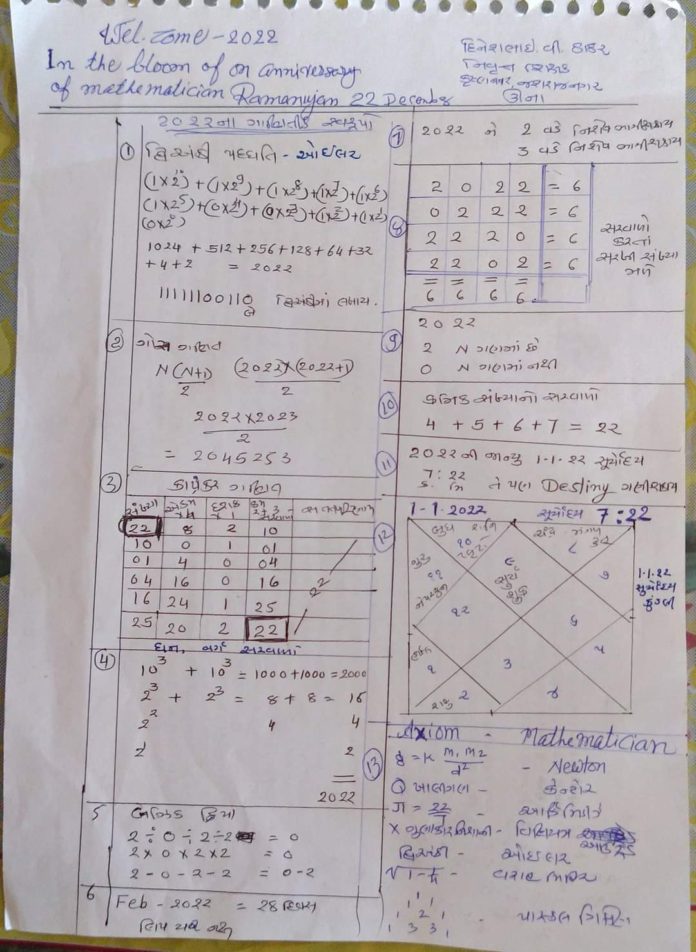 Wel.come - 2022
In the bloom of on anniversary
of mathematician Ramanujan 22 December
દિનેશભાઇ. વી. ઠાકર
નિવૃત્ત
ઊના
૨૦૨૨ના ગાણિતીક સ્વરૂપો
① દ્વિઅંકી પધ્ધતિ - ઓઇલર
(1×2¹⁰) + (1×2⁹) + (1×2⁸) + (1×2⁷) + (1×2⁶)
(1×2⁵) + (0×2⁴) + (0×2³) + (1×2²) + (1×2¹)
(0×2⁰)
1024 + 512 + 256 + 128 + 64 + 32
+ 4 + 2 = 2022
11111100110 દ્વિઅંકીમાં લખાય.
② ગોસ ગણિત
N(N+1)/2 (2022)×(2022+1)/2
2022×2023/2
= 2045253
③ કાપ્રેકર ગણિત
સંખ્યા
22 8 2 10
10 0 1 01
01 4 0 04
04 16 0 16
16 24 1 25
25 20 2 22
④ ઘન, વર્ગ સરવાળા
10³ + 10³ = 1000 + 1000 = 2000
2³ + 2³ = 8 + 8 = 16
2² 4 4
2 2
2022
5 ક્રિયા
2 ÷ 0 ÷ 2 ÷ 2 = 0
2 × 0 × 2 × 2 = 0
2 - 0 - 2 - 2 = 0-2
6 Feb - 2022 = 28 દિવસ
⑦ 2022 ને 2 વડે નિશેષ ભાગી શકાય
3 વડે નિશેષ ભાગી શકાય
⑧
2 0 2 2 = 6
0 2 2 2 = 6
2 2 2 0 = 6
2 2 0 2 = 6
= = = =
6 6 6 6
સરવાળો
કરતાં
સરખી સંખ્યા
મળે
⑨ 2022
2 N ગણમાં છે
0 N ગણમાં નથી
⑩ ક્રમિક સંખ્યાનો સરવાળો
4 + 5 + 6 + 7 = 22
⑪ 2022 ની જાન્યુ 1-1-22 સૂર્યોદય
7:22
ક. મિ તે પણ Destiny ગણી શકાય
⑫ 1-1-2022 સૂર્યોદય 7:22
બુધ શનિ
૧૦
૯
સૂર્ય
શુક્ર
ચંદ્ર મંગળ
૮
ગુરુ
૧૧
૭
૧૨
૬
૧
૩
૫
રાહુ
૨
૪
1-1-22
સૂર્યોદય
કુંડલી
⑬ Axiom - Mathematician
= K m₁ m₂/d² - Newton
π = 22/7
દ્વિઅંકી - ઓઇલર
1 1
1 2 1
1 3 3 1